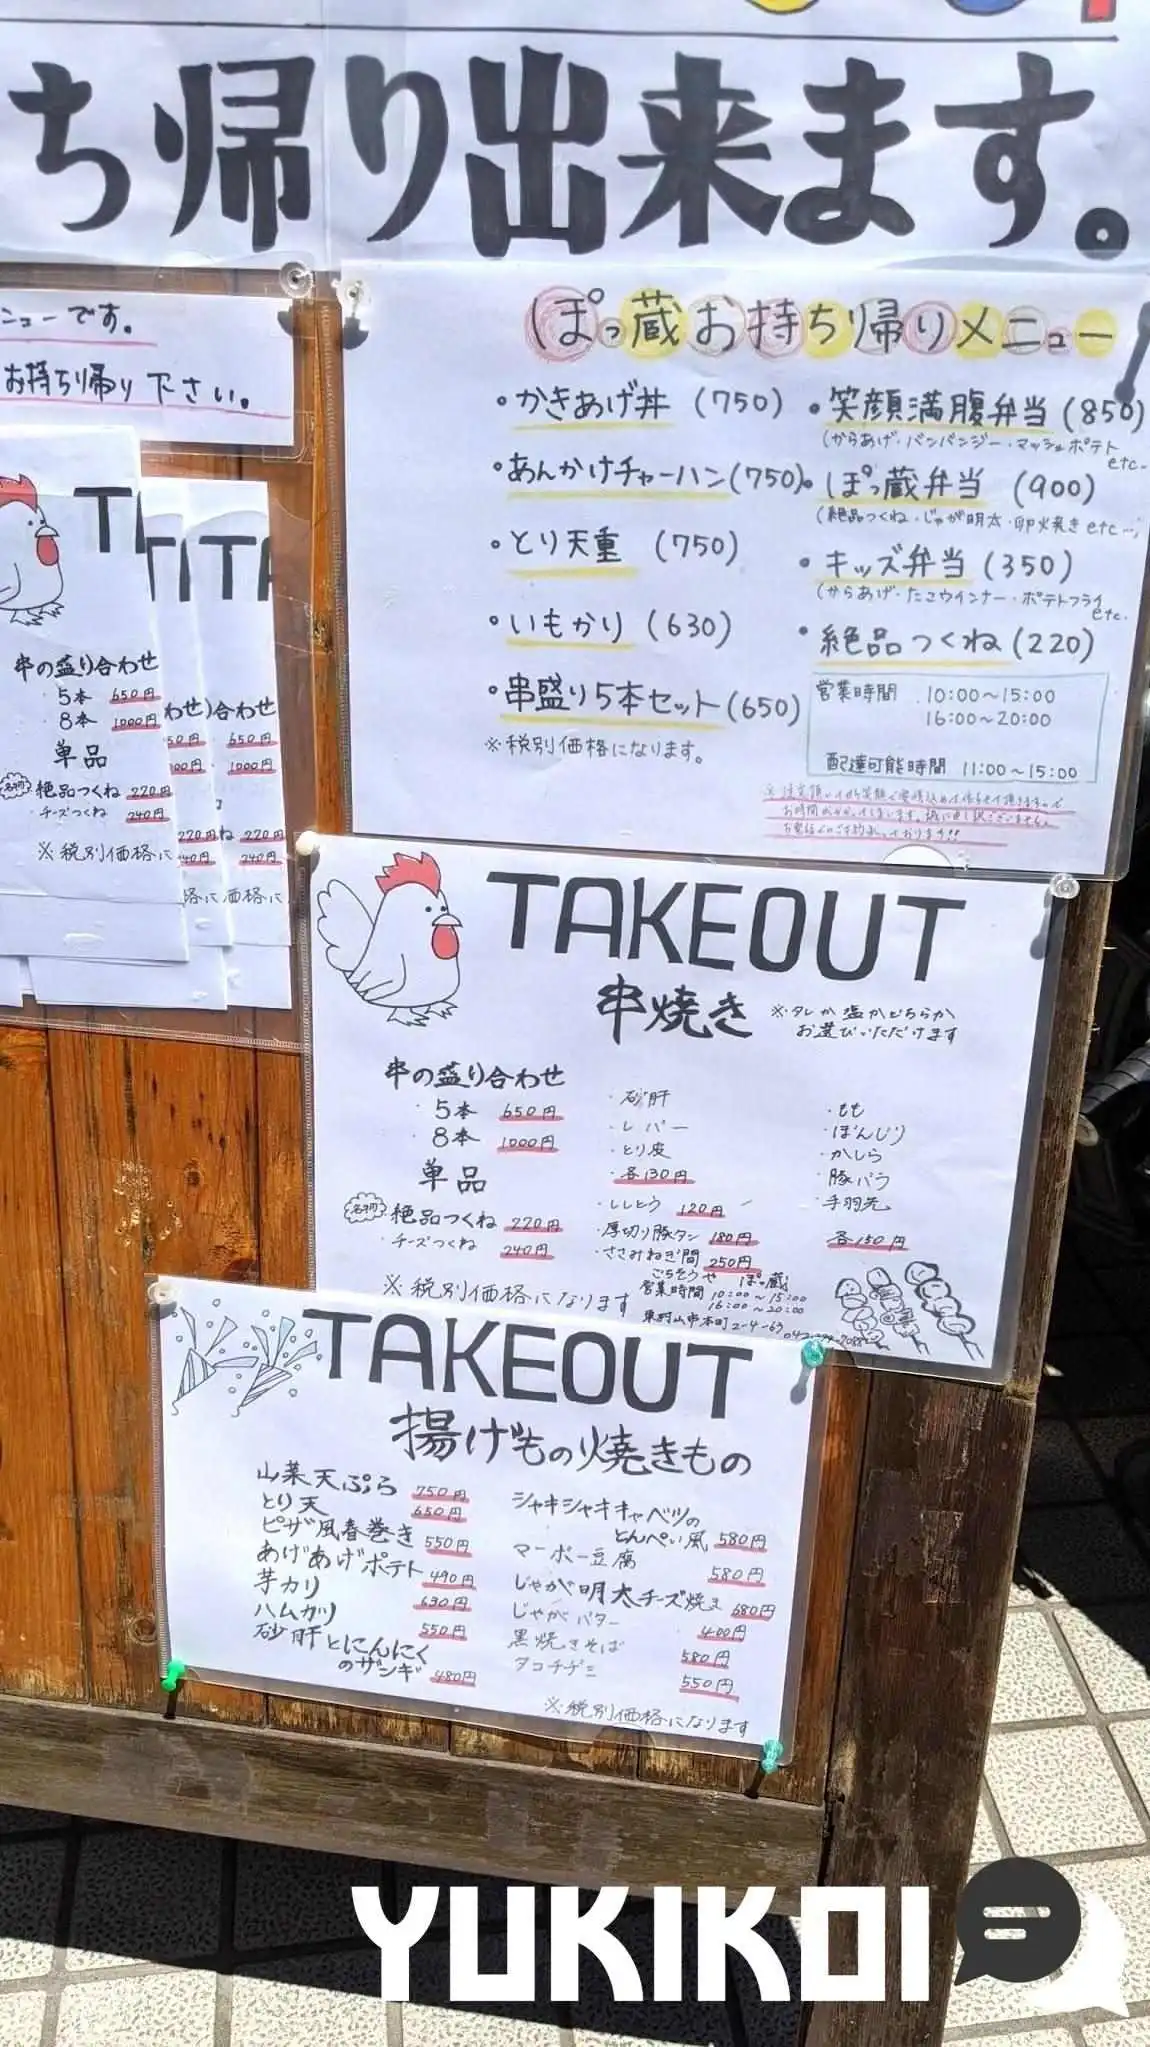 ち帰り出来ます。
ニューです。
お持ち帰り下さい。
ぽっ蔵お持ち帰りメニュー
・かきあげ丼 (750)
・あんかけチャーハン(750)
・とり天重 (750)
・いもかり (630)
・串盛り5本セット(650)
※税別価格になります。
・笑顔満腹弁当(850)
(からあげ・バンバンジー・マッシュポテト
etc.
・ぽっ蔵弁当 (900)
(絶品つくね・じゃが明太・卵焼きetc…)
・キッズ弁当(350)
(からあげ・たこウインナー・ポテトフライ
etc.
・絶品つくね(220)
営業時間 10:00~15:00
16:00~20:00
配達可能時間 11:00~15:00
串の盛り合わせ
5本 650円
8本 1000円
単品
名物 絶品つくね 220円
・チーズつくね 240円
※税別価格に
わせ
合わせ
650円
1000円
220円
240円
価格に
TAKEOUT
串焼き
※タレか塩かどちらか
お選びいただけます
串の盛り合わせ
・5本 650円
・8本 1000円
単品
名物 絶品つくね 220円
・チーズつくね 240円
※税別価格になります
・砂肝
・レバー
・とり皮
・各130円
・ししとう 120円
・厚切り豚タン 180円
・ささみねぎ間 250円
・もも
・ぼんじり
・かしら
・豚バラ
・手羽先
各150円
ごちそうや ぽっ蔵
営業時間 10:00~15:00
16:00~20:00
東村山市本町2-4-63
TAKEOUT
揚げもの焼きもの
山菜天ぷら 750円
とり天 650円
ピザ風春巻き 550円
あげあげポテト 490円
芋カリ 630円
ハムカツ 550円
砂肝とにんにく
のザンギ 480円
シャキシャキキャベツの
とんぺい風 580円
マーボー豆腐 580円
じゃが明太チーズ焼き 680円
じゃがバター 400円
黒焼きそば 580円
タコチヂミ 550円
※税別価格になります
YUKIKOI